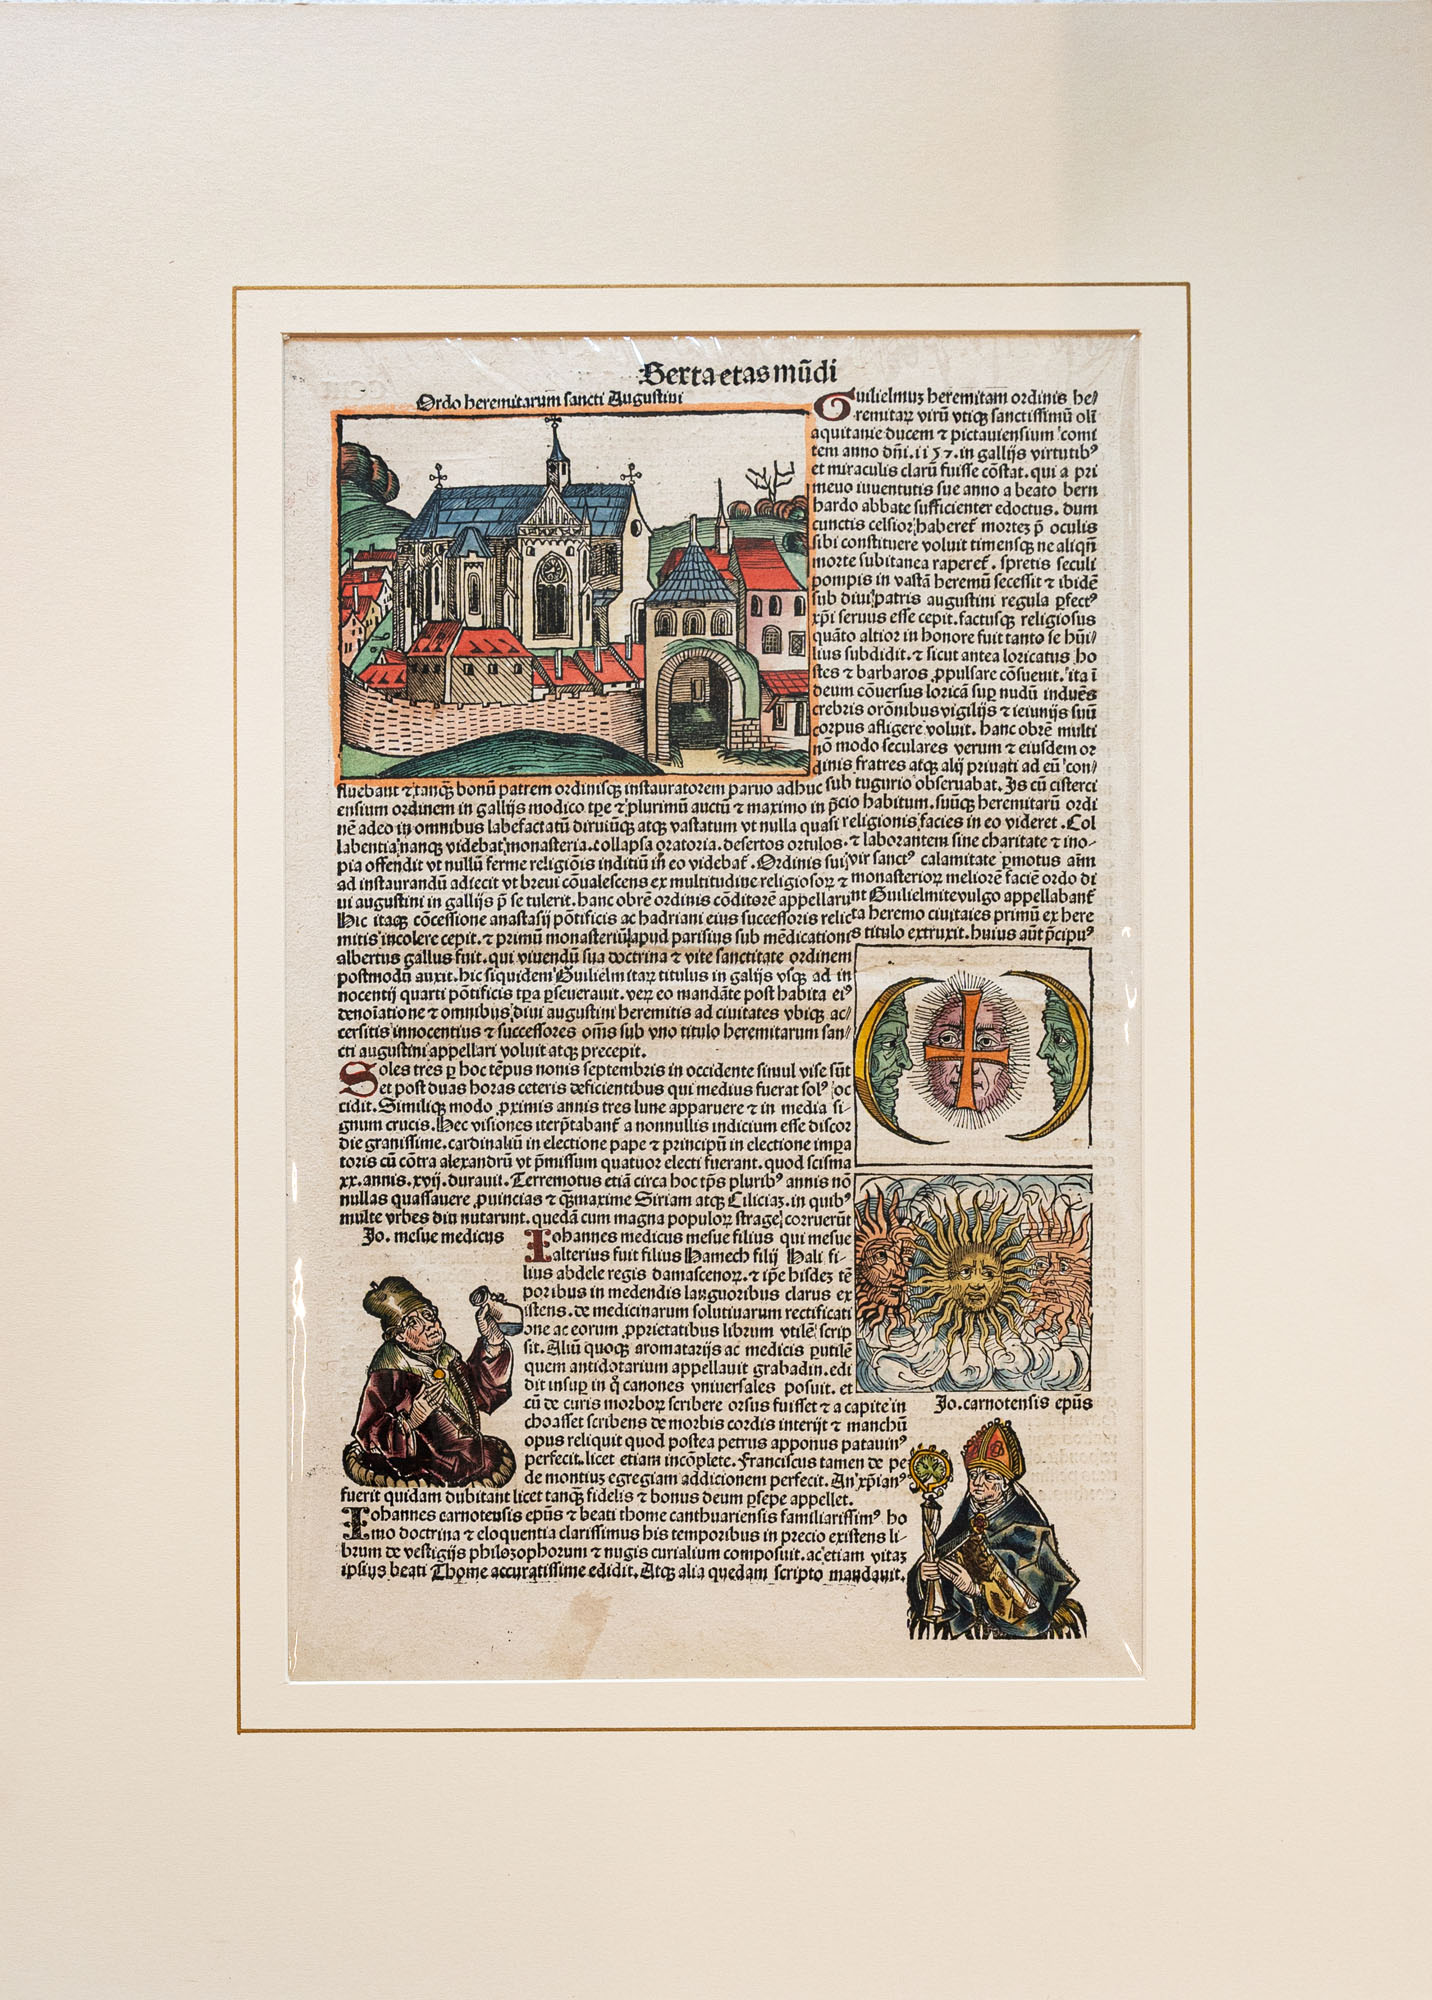 Sexta etas mũdi
Ordo heremitarum sancti Augustini
Guilielmuz heremitam ordinis he/
remitaꝝ virũ vtiqꝫ sanctissimũ olĩ
aquitanie ducem ⁊ pictauiensium comi
tem anno dñi.1157.in gallijs virtutibꝰ
et miraculis clarũ fuisse cõstat.qui a pri
meuo iuuentutis sue anno a beato bern
hardo abbate sufficienter edoctus. dum
cunctis celsior haberet̃ mortez p̄ oculis
sibi constituere voluit timensqꝫ ne aliqñ
morte subitanea raperet̃. spretis seculi
pompis in vastã heremũ secessit ⁊ ibidẽ
sub diui patris augustini regula ꝑfectꝰ
xp̃i seruus esse cepit.factusqꝫ religiosus
quãto altior in honore fuit tanto se hũi/
lius subdidit.⁊ sicut antea loricatus ho
stes ⁊ barbaros ꝓpulsare cõsueuit.ita ĩ
deum cõuersus loricã suꝑ nudũ induẽs
crebris orõnibus vigilijs ⁊ ieiunijs suũ
corpus afligere voluit. hanc obrẽ multi
nõ modo seculares verum ⁊ eiusdem or
dinis fratres atqꝫ alij priuati ad eũ con/
fluebant ⁊ tanqꝫ bonũ patrem ordinisqꝫ instauratorem paruo adhuc sub tugurio observabat. Is cũ cisterci
ensium ordinem in gallijs modico tꝑe ⁊ plurimũ auctũ ⁊ maximo in p̃cio habitum.suũqꝫ heremitarũ ordi
nẽ adeo in omnibus labefactatũ diruiũqꝫ atqꝫ vastatum vt nulla quasi religionis facies in eo videret̃.Col
labentia nanqꝫ videbat monasteria.collapsa oratoria.desertos ortulos.⁊ laborantem sine charitate ⁊ ino-
pia offendit vt nullũ ferme religiõis inditiũ in eo videbat̃.Ordinis sui vir sanctꝰ calamitate ꝑmotus aĩm
ad instaurandũ adiecit vt breui cõualescens ex multitudine religiosoꝝ ⁊ monasterioꝝ meliorẽ faciẽ ordo di
ui augustini in gallijs p̄ se tulerit.hanc obrẽ ordinis cõditorẽ appellarunt Guilielmite vulgo appellabant̃
Hic itaqꝫ cõcessione anastasij põtificis ac hadriani eius successoris relicta heremo ciuitates primũ ex here
mitis incolere cepit.⁊ primũ monasteriũ apud parisius sub mẽdicationis titulo extruxit.huius aũt p̃cipuꝰ
albertus gallus fuit.qui viuendũ sua doctrina ⁊ vite sanctitate ordinem
postmodũ auxit.hic siquidem Guilielmitaꝝ titulus in galijs vsqꝫ ad in
nocentij quarti põtificis tꝑa ꝑseuerauit. veꝝ eo mandãte post habita eiꝰ
denoĩatione ⁊ omnibus diui augustini heremitis ad ciuitates vbiqꝫ ac/
cersitis innocentius ⁊ successores oms̃ sub vno titulo heremitarum san/
cti augustini appellari voluit atqꝫ precepit.
Soles tres ꝑ hoc tẽpus nonis septembris in occidente simul vise sũt
et post duas horas ceteris deficientibus qui medius fuerat solꝰ oc
cidit.Similiqꝫ modo ꝓximis annis tres lune apparuere ⁊ in media si-
gnum crucis.Hec visiones iterp̃tabant̃ a nonnullis indicium esse discor
die grauissime.cardinaliũ in electione pape ⁊ principũ in electione imꝑa
toris cũ cõtra alexandrũ vt p̃missum quatuor electi fuerant.quod scisma
xx.annis.xvij.durauit.Terremotus etiã circa hoc tꝑs pluribꝰ annis nõ
nullas quassauere ꝓuincias ⁊ qꝫmaxime Siriam atqꝫ Ciliciaz.in quibꝰ
multe vrbes diu nutarunt.quedã cum magna populoꝝ strage corruerũt
Jo. mesue medicus
Iohannes medicus mesue filius qui mesue
alterius fuit filius Hamech filij Hali fi-
lius abdele regis damascenoꝝ.⁊ ip̃e hisdez tẽ
poribus in medendis languoribus clarus ex
istens.de medicinarum solutiuarum rectificati
one ac eorum ꝓprietatibus librum vtilẽ scrip
sit.Aliũ quoqꝫ aromatarijs ac medicis ꝑutilẽ
quem antidotarium appellauit grabadin.edi
dit insuꝑ in q̊ canones vniuersales posuit. et
cũ de curis morboꝝ scribere orsus fuisset ⁊ a capite in
choasset scribens de morbis cordis interijt ⁊ manchũ
opus reliquit quod postea petrus apponus patauinꝰ
perfecit.licet etiam incõplete.Franciscus tamen de pe
de montiuz egregiam addicionem perfecit.An xp̃ianꝰ
fuerit quidam dubitant licet tanqꝫ fidelis ⁊ bonus deum ꝑsepe appellet.
Jo.carnotensis ep̃us
Iohannes carnotensis ep̃us ⁊ beati thome canthuariensis familiarissimꝰ ho
mo doctrina ⁊ eloquentia clarissimus his temporibus in precio existens li-
brum de vestigijs philozophorum ⁊ nugis curialium composuit.ac etiam vitaz
ipsius beati Thome accuratissime edidit.Atqꝫ alia quedam scripto mandauit.